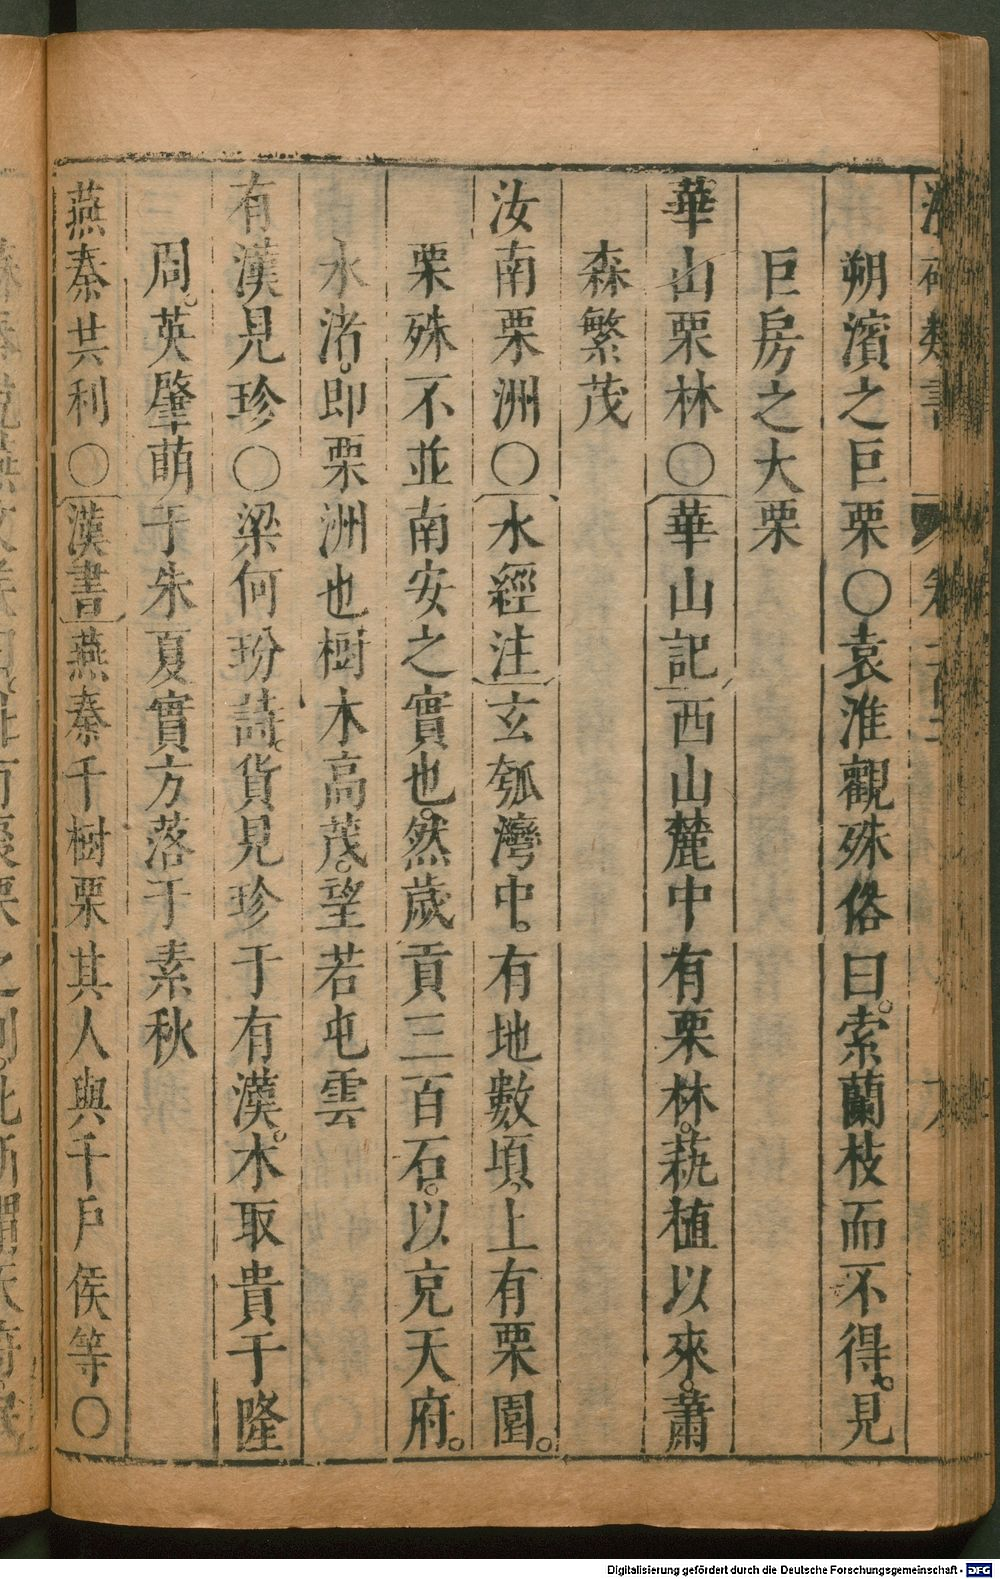 類書
朔濱之巨栗〇袁淮觀殊俗曰索蘭枝而不得見
巨房之大栗
華山栗林〇華山記西山麓中有栗林蓺植以來蕭
森繁茂
汝南栗洲〇水經注玄瓠灣中有地數頃上有栗園
栗殊不並南安之實也然歲貢三百石以充天府
水渚即栗洲也樹木高茂望若屯雲
有漢見珍〇梁何玢詩貨見珍于有漢木取貴于隆
周英肇萌于朱夏實方落于素秋
燕秦共利〇漢書燕秦千樹栗其人與千戶侯等〇
Digitalisierung gefördert durch die Deutsche Forschungsgemeinschaft - DFG